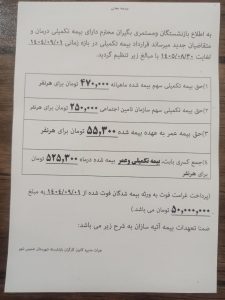 بسمه تعالی
به اطلاع بازنشستگان ومستمری بگیران محترم دارای بیمه تکمیلی درمان و
متقاضیان جدید میرساند قرارداد بیمه تکمیلی در بازه زمانی ۱۴۰۴/۰۹/۰۱
لغایت ۱۴۰۵/۰۸/۳۰ با مبالغ زیر تنظیم گردید.
۱)حق بیمه تکمیلی سهم بیمه شده ماهیانه ۴۷۰,۰۰۰ تومان برای هرنفر
۲)حق بیمه تکمیلی سهم سازمان تامین اجتماعی ۲۵۰,۰۰۰ تومان برای هرنفر
۳)حق بیمه عمر به عهده بیمه شده ۵۵,۳۰۰ تومان برای هرنفر
۴)جمع کسری بابت، بیمه تکمیلی وعمر بیمه شده درماه ۵۲۵,۳۰۰ تومان
برای هرنفر
(پرداخت غرامت فوت به ورثه بیمه شدگان فوت شده از ۱۴۰۴/۰۹/۰۱ به مبلغ
۵۰,۰۰۰,۰۰۰ تومان می باشد.)
ضمنا تعهدات بیمه آتیه سازان به شرح زیر می باشد:
هیات مدیره کانون کارگران بازنشسته شهرستان خمینی شهر